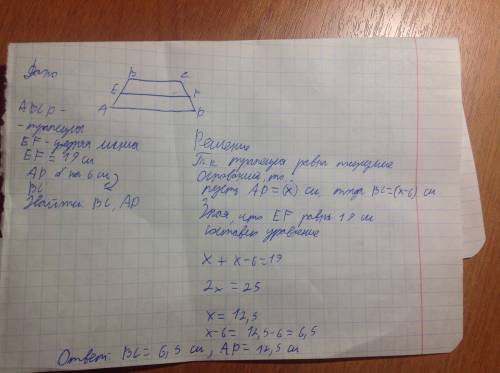 Дано
B C
E F
A D
ABCD -
- трапеция
EF - средняя линия
EF = 19 см
AD б на 6 см
BC
Найти BC, AD
Решение
Т.к трапеция равна
оснований, то
пусть AD = (x) см, тогда BC = (x-6) см
Зная, что EF равна 19 см
составим уравнение
x + x-6=19
2x = 25
x = 12,5
x-6 = 12,5-6 = 6,5
Ответ: BC = 6,5 см, AD = 12,5 см